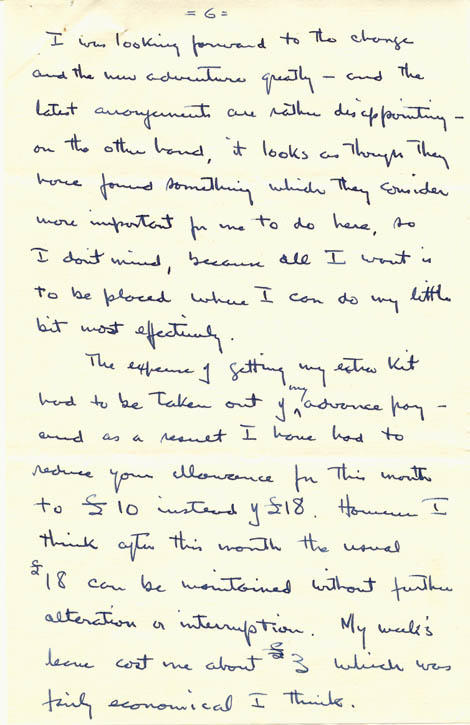 = 6 =
I was looking forward to the change
and the new adventure greatly – and the
latest arrangements are rather disappointing –
on the other hand, it looks as though they
have found something which they consider
more important for me to do here, so
I don't mind, because all I want is
to be placed where I can do my little
bit most effectively.
The expense of getting my extra kit
had to be taken out of my advance pay –
and as a result I have had to
reduce your allowance for this month
to £10 instead of £18. However I
think after this month the usual
£18 can be maintained without further
alteration or interruption. My week's
leave cost me about £3 which was
fairly economical I think.